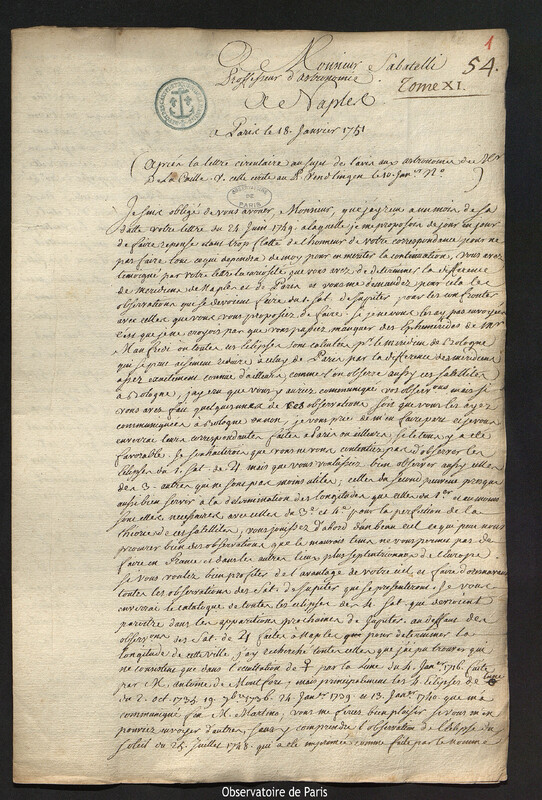 1
54.
A Monsieur Sabatelli
Professeur d'astronomie
Tome XI.
A Naples
a Paris le 18 Janvier 1751
(Après la lettre circulaire au sujet de l'avis aux astronomes de Mr
De la Caille & celle ecrite au P. Vendlingen le 10 Janer
OBSERVATOIRE DE PARIS
Je suis obligé de vous avouer, Monsieur, que j'ay receu au mois de sa
datte votre lettre du 24 Juin 1749. a laquelle je me proposois de jour en jour
de faire reponse etant trop flatté de l'honneur de votre correspondance pour ne
pas faire tout ce qui dependra de moy pour en meriter la continuation, vous avez
temoigné par votre lettre la curiosité que vous avez de determiner la difference
de meridiens de Naples et de Paris et vous me demandez pour cela les
observations qui se devroient faire du 1. sat. de Jupiter pour les confronter
avec celles que vous vous proposez de faire. Je ne vous les ay pas envoyées
c'est que je ne croyois pas que vous puissiez manquer des Ephemerides de Mr
Manfredi ou toutes les eclipses sont calculées pr. le meridien de Bologne
qu'il peut aisement reduire a celuy de Paris par la difference des meridiens
assez exactement connue d'ailleurs, comme l'on observe aussy ces satellites
a Bologne, j'ay cru que vous y auriez communiqué vos observons mais si
vous avez fait quelqu'unes de ces observations soit que vous les ayez
communiquées a Bologne ou non, je vous prie de m'en faire part et je vous
enverrai leurs correspondantes faites a Paris ou ailleurs si le tems y a eté
favorable. Je souhaitterois que vous ne vous contentiez pas d'observer les
eclipses du 1. Sat. de ♃ mais que vous voulussiez bien observer aussy celles
des 3 autres qui ne sont pas moins utiles; celles du second peuvent presque
aussi bien servir a la determination des longitudes que celles du 1er et au moins
sont elles necessaires avec celles du 3e et 4e pour la perfection de la
theorie de ces satellites; vous jouissez d'abord d'un beau ciel ce qui peut nous
procurer bien des observations que le mauvais tems ne nous permet pas de
faire en France et dans les autres lieux plus septentrionaux de l'Europe.
Si vous voulez bien profiter de l'avantage de votre ciel, et faire doresnavant
toutes les observations des Sat. de Jupiter qui se presenteront. Je vous
enverrai le catalogue de toutes les eclipses des 4. Sat. qui devroient
paroitre dans les apparitions prochaines de Jupiter. au deffaut des
observons des Sat. de ♃ faites a Naples pour determiner la
longitude de cette ville, j'ay recherché toutes celles que j'ai pu trouver qui
ne consistent que dans l'occultation de ♀ par la Lune du 4. Janer 1716. faite
par M. Antoine de Montfort, mais principalement les 4 eclipses de lune
du 2 oct. 1735. 19. 7bre 1736. 24 Janer 1739 et 13. Janer 1740 que m'a
communiqué feu M. Martino, vous me feriez bien plaisir si vous m'en
pouviez envoyer d'autres, sans y comprendre l'observation de l'eclipse du
Soleil du 25. Juillet 1748. qui a eté imprimée comme faite par le nommé
Observatoire de Paris